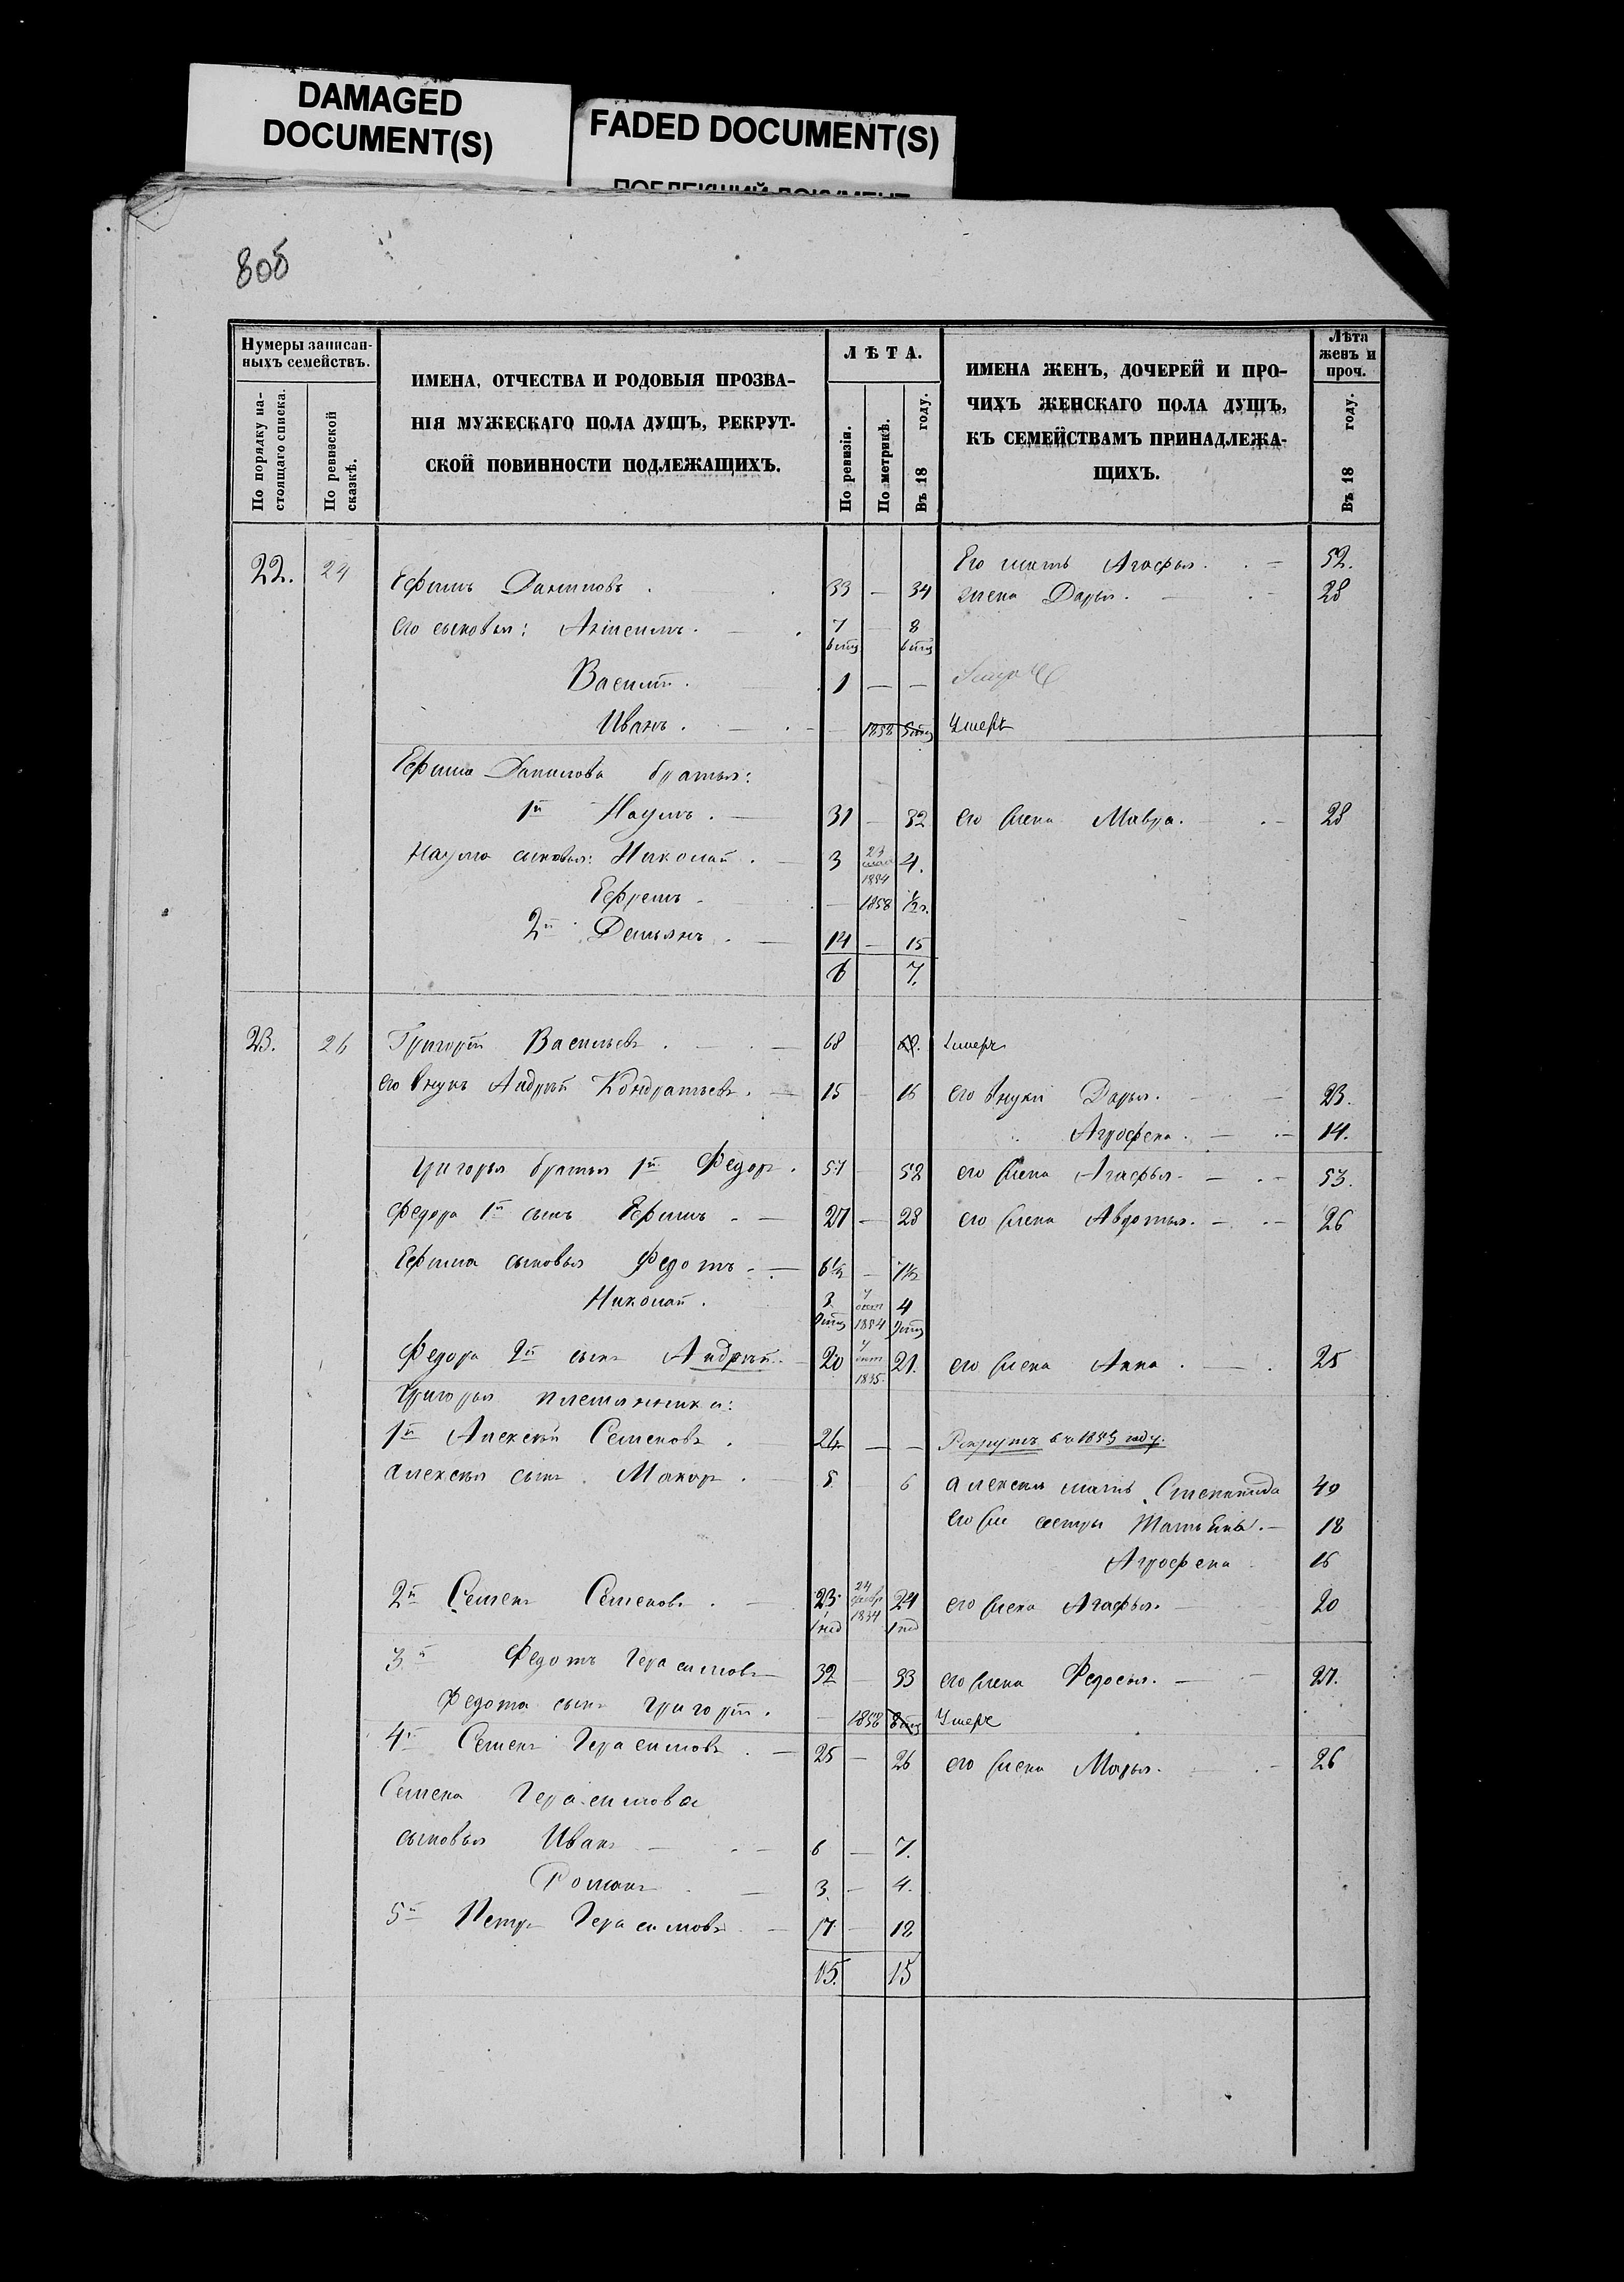 DAMAGED
DOCUMENT(S)
FADED DOCUMENT(S)
805
Нумеры записан-
ныхъ семействъ.
По порядку на-
стоящаго списка.
По ревизской
сказкѣ.
ИМЕНА, ОТЧЕСТВА И РОДОВЫЯ ПРОЗВА-
НІЯ МУЖЕСКАГО ПОЛА ДУШЪ, РЕКРУТ-
СКОЙ ПОВИННОСТИ ПОДЛЕЖАЩИХЪ.
ЛѢТА.
По ревизіи.
По метрикѣ.
Въ 18 году.
ИМЕНА ЖЕНЪ, ДОЧЕРЕЙ И ПРО-
ЧИХЪ ЖЕНСКАГО ПОЛА ДУШЪ,
КЪ СЕМЕЙСТВАМЪ ПРИНАДЛЕЖА-
ЩИХЪ.
Лѣта
женъ и
проч.
Въ 18 году.
Его мать Агафья. — 52.
22. 24 Ефимъ Даниловъ. 33 — 34 жена Дарья. — 28
его сыновья: 7 — 8
Василій. 1 — —
Иванъ. — 1858 Умеръ
Ефима Данилова братья:
1й Наумъ. — 31 — 32 его жена Мавра. — 28
Наума сыновья: Николай. — 3 23 1854 4.
Ефремъ — 1858
2й Демьянъ. — 14 — 15
6 7.
23. 26 Григорій Васильевъ. — 68 Умеръ
его внукъ Андрей Кондратьевъ. — 15 — 16 его внуки Дарья. — 23.
Агрофена. — 14.
Григорья братья 1й Федоръ. 51 — 52 его жена Агафья. — 53.
Федора 1й сынъ Ефимъ. — 27 — 28 его жена Авдотья. — 26
Ефима сыновья Федотъ. — 6½ — 7½
Николай. 3 7 1854 4
Федора 2й сынъ Андрей. — 20 1835 21. его жена Анна. — 25
Григорья племянники:
1й Алексѣй Семеновъ. 24 — — Рекрутъ въ 1855 году.
Алексѣя сынъ Макаръ. 5 6 Алексѣя мать Степанида 49
его же сестры Татьяна. — 18
Агрофена 16
2й Семенъ Семеновъ. — 23 24 1834 24 его жена Агафья. — 20
3й Федотъ Герасимовъ — 32 — 33 его жена Федосья. — 27.
Федота сынъ Григорій. — 1858 Умеръ
4й Семенъ Герасимовъ. — 25 — 26 его жена Марья. — 26
Семена Герасимова
сыновья Иванъ — 6 — 7.
Романъ — 3. — 4.
5й Петръ Герасимовъ — 17 — 18
15. 15